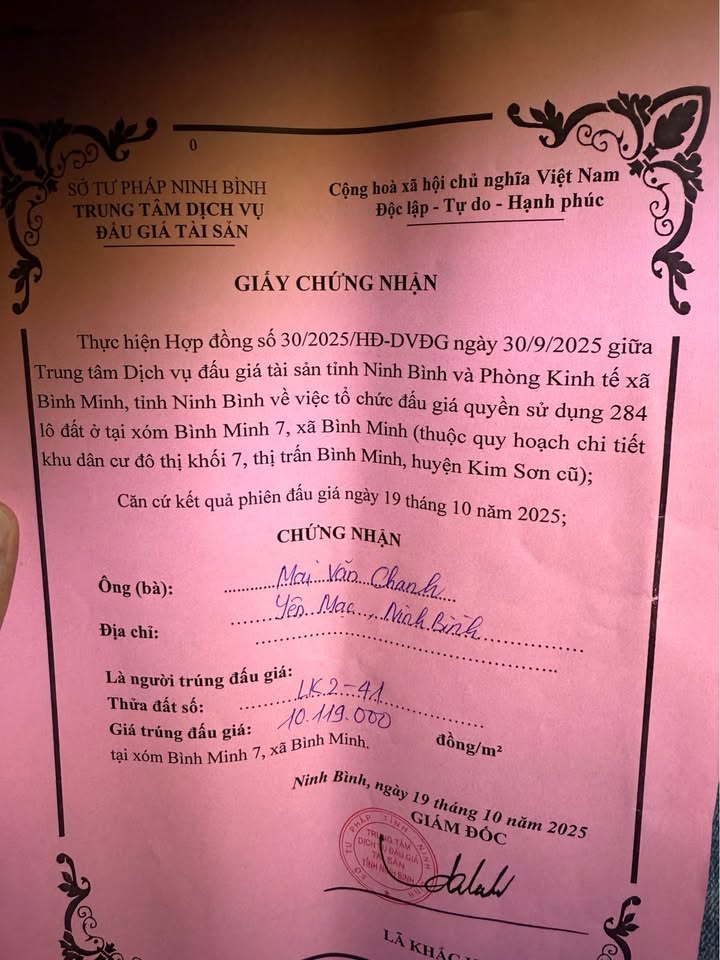 0
SỞ TƯ PHÁP NINH BÌNH
TRUNG TÂM DỊCH VỤ
ĐẤU GIÁ TÀI SẢN
Cộng hoà xã hội chủ nghĩa Việt Nam
Độc lập - Tự do - Hạnh phúc
GIẤY CHỨNG NHẬN
Thực hiện Hợp đồng số 30/2025/HĐ-DVĐG ngày 30/9/2025 giữa
Trung tâm Dịch vụ đấu giá tài sản tỉnh Ninh Bình và Phòng Kinh tế xã
Bình Minh, tỉnh Ninh Bình về việc tổ chức đấu giá quyền sử dụng 284
lô đất ở tại xóm Bình Minh 7, xã Bình Minh (thuộc quy hoạch chi tiết
khu dân cư đô thị khối 7, thị trấn Bình Minh, huyện Kim Sơn cũ);
Căn cứ kết quả phiên đấu giá ngày 19 tháng 10 năm 2025;
CHỨNG NHẬN
Ông (bà): Mai Văn Chanh
Địa chỉ: Yên Mạc, Ninh Bình
Là người trúng đấu giá:
Thửa đất số: LK2-41
Giá trúng đấu giá: 10.119.000 đồng/m²
tại xóm Bình Minh 7, xã Bình Minh.
Ninh Bình, ngày 19 tháng 10 năm 2025
GIÁM ĐỐC
SỞ TƯ PHÁP TỈNH NINH BÌNH
TRUNG TÂM
DỊCH VỤ ĐẤU GIÁ
TÀI SẢN
TỈNH NINH BÌNH
LÃ KHẮC